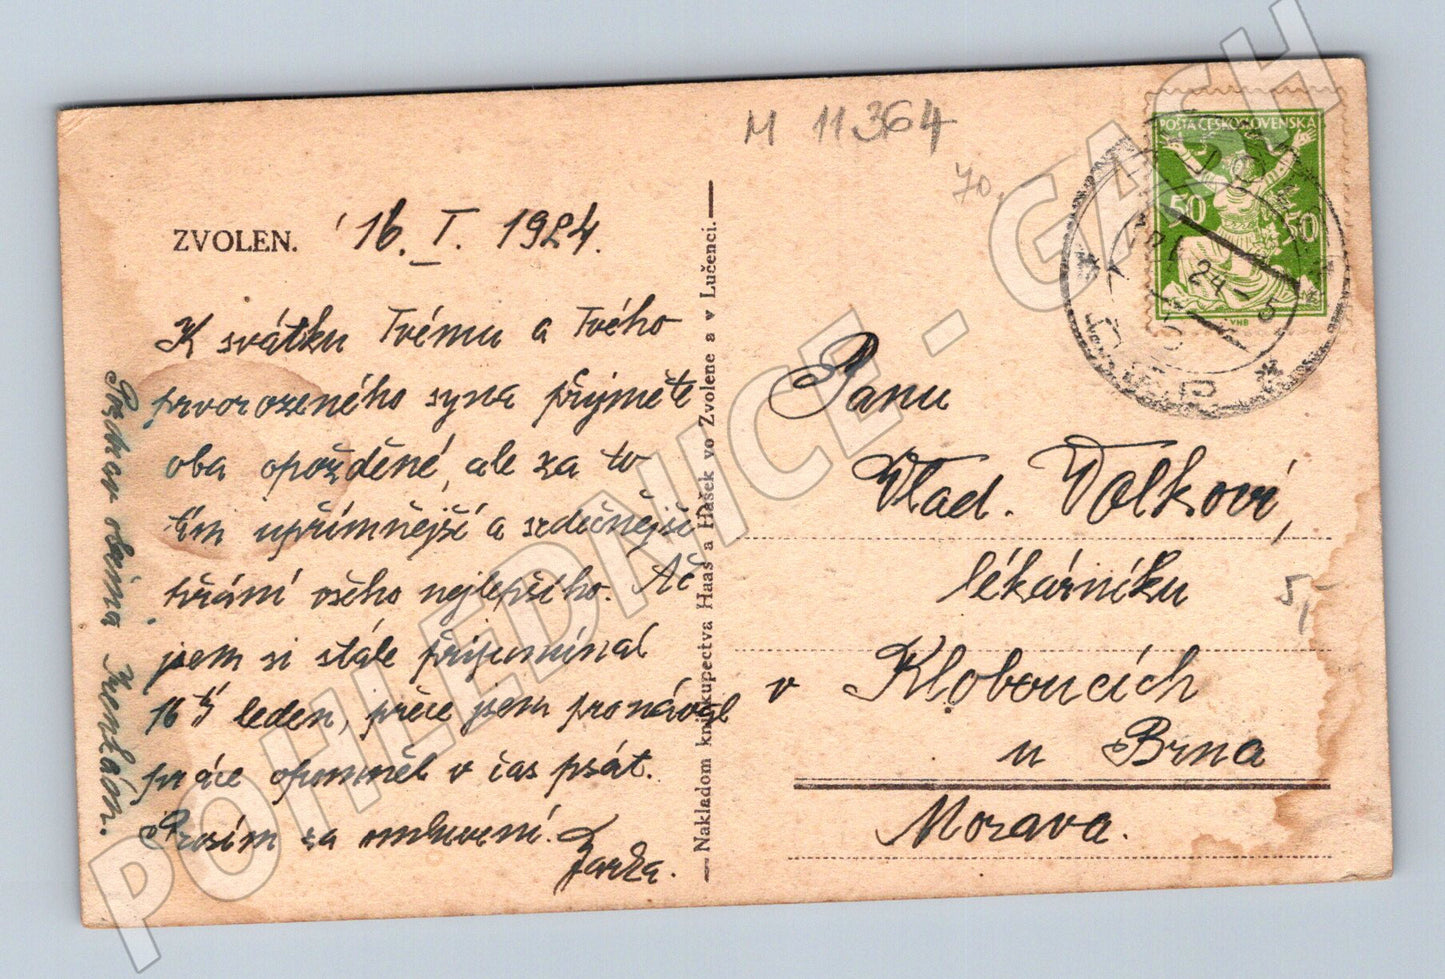 M 11364
70.
POŠTA ČESKOSLOVENSKÁ
50 50
24-5
ZVOLEN. 16. I. 1924.
K svátku Tvému a Tvého
prvorozeného syna přijměte
oba opožděné, ale za to
tím upřímnější a srdečnější
přání všeho nejlepšího. Ač
jsem si stále připomínal
16tý leden, přece jsem pro nával
práce opomněl v čas psát.
Prosím za omluvení.
Pozdrav všem
Nakladom kníhkupectva Haas a Hašek vo Zvolene a v Lučenci.
Panu
Vlad. Volkovi,
lékárníku
v Kloboucích
u Brna
Morava.
5,-
POHLEDNICE - GASH